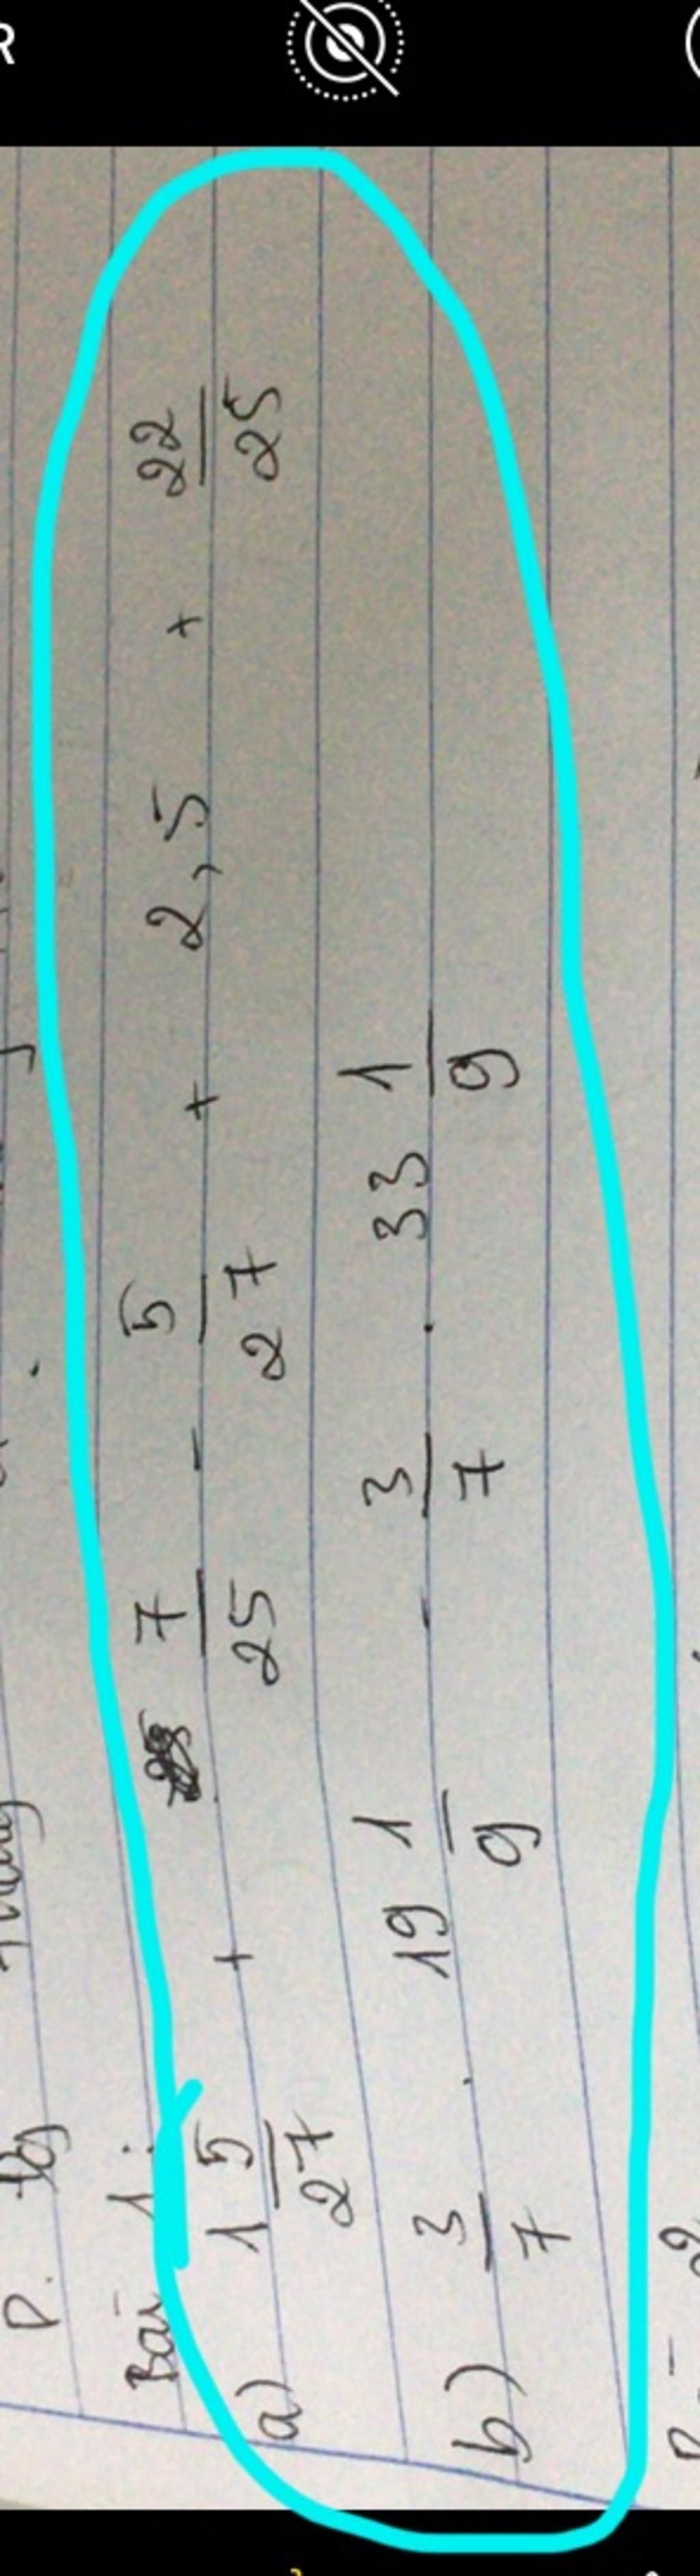 R
P.
Bài 1:
a) 1 5/27 + 7/25 - 5/27 + 2,5 + 22/25
b) 3/7 . 19 1/9 - 3/7 . 33 1/9